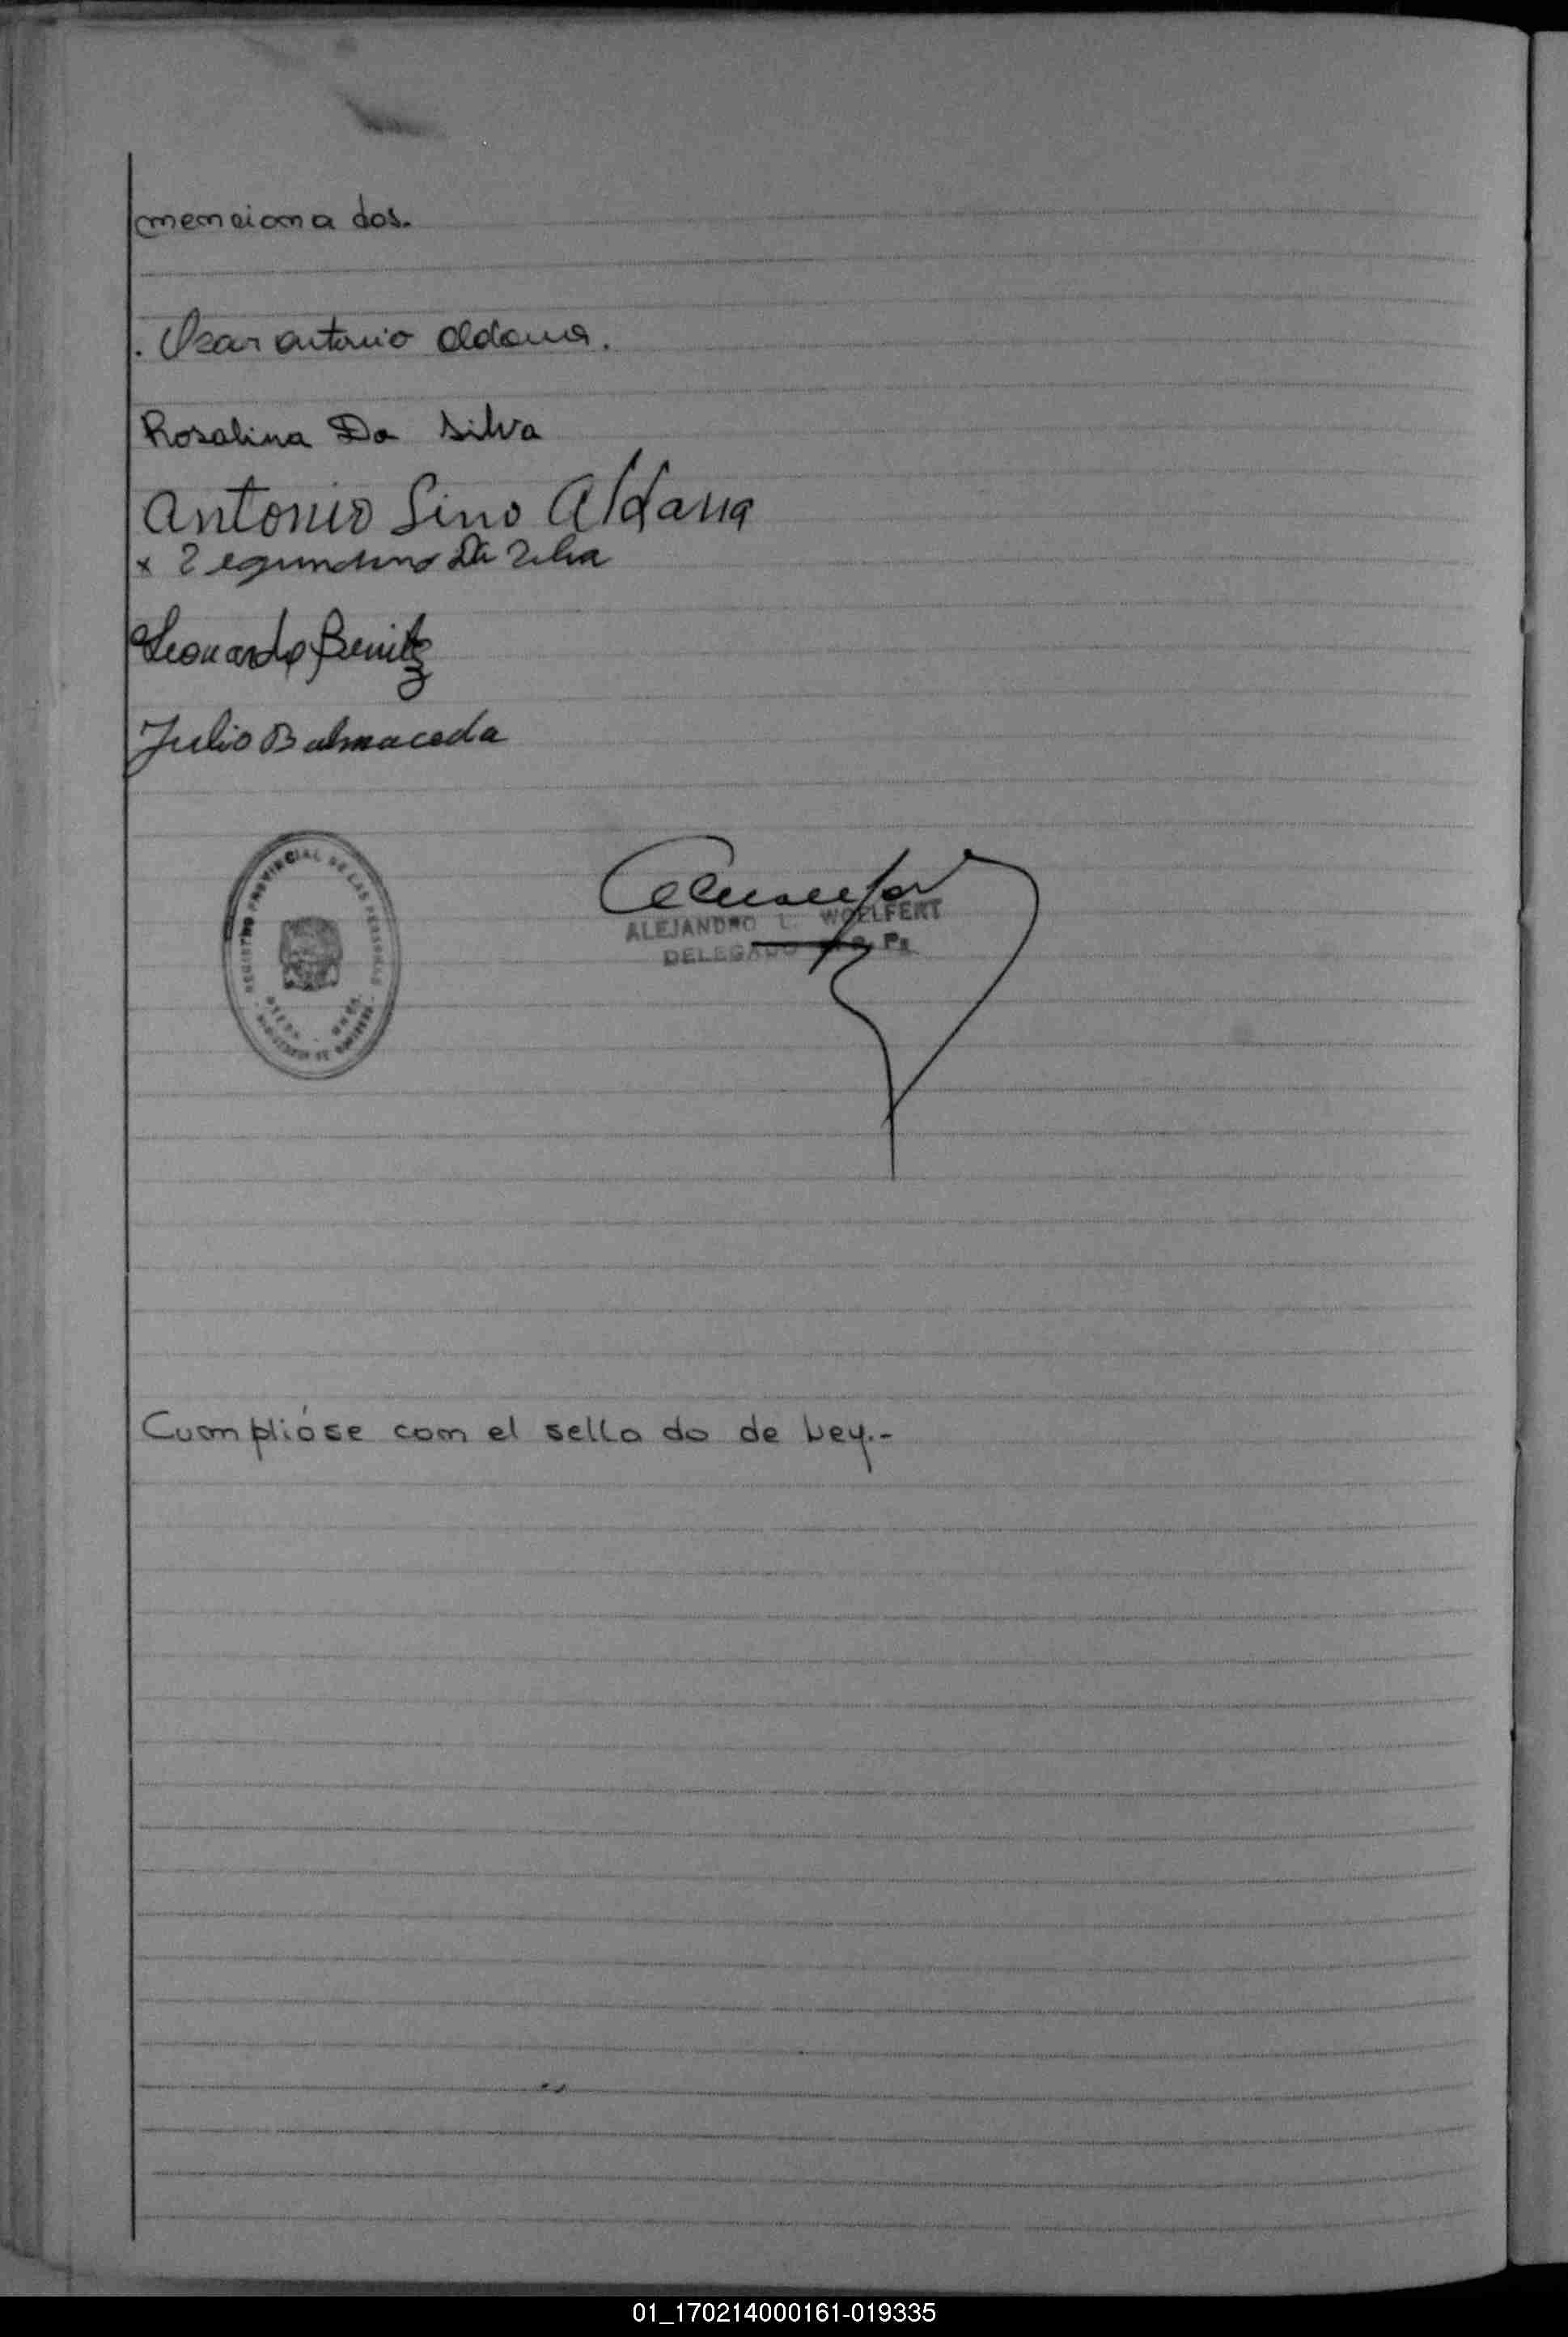 mencionados.
. Oscar Antonio Aldana.
Rosalina Da Silva
Antonio Lino Aldana
x Segundino Da Silva
Leonardo Benitez
Julio Balmaceda
REGISTRO PROVINCIAL DE LAS PERSONAS
ALEJANDRO L. WOELFERT
DELEGADO
Cumplióse con el sellado de Ley.-
01_170214000161-019335